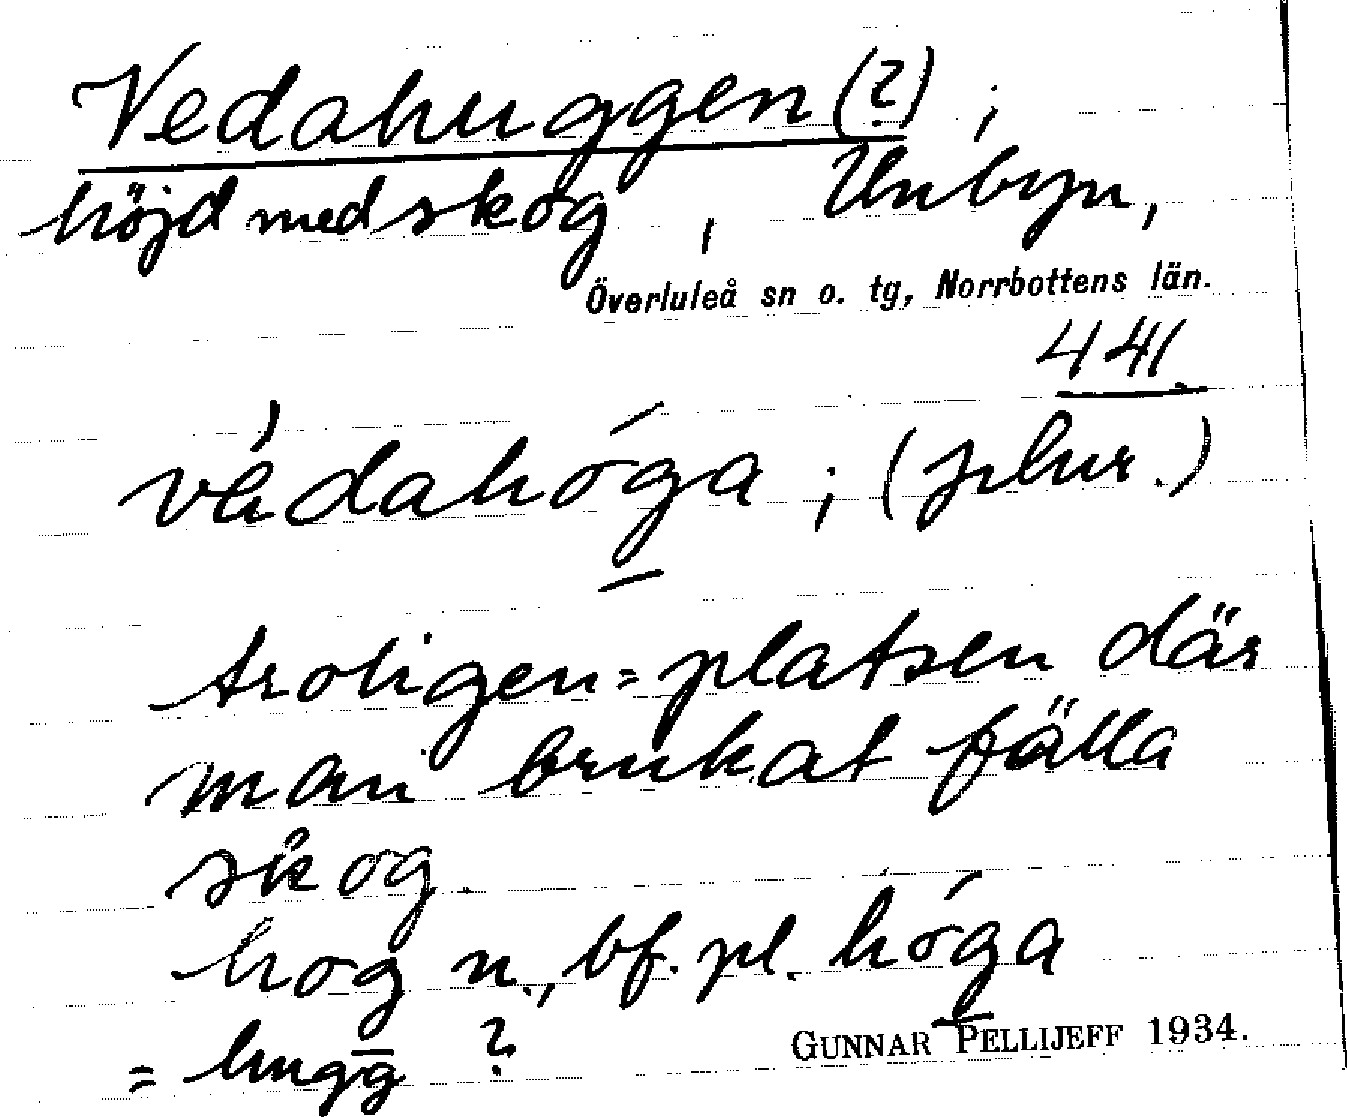 Vedahuggen (?) ;
höjd med skog , Unbyn,
Överluleå sn o. tg, Norrbottens län.
441.
vádahóga ; (plur.)
troligen = platsen där
man brukat fälla
skog.
hog n., bf. pl. hóga
= hugg ?
GUNNAR PELLIJEFF 1934.